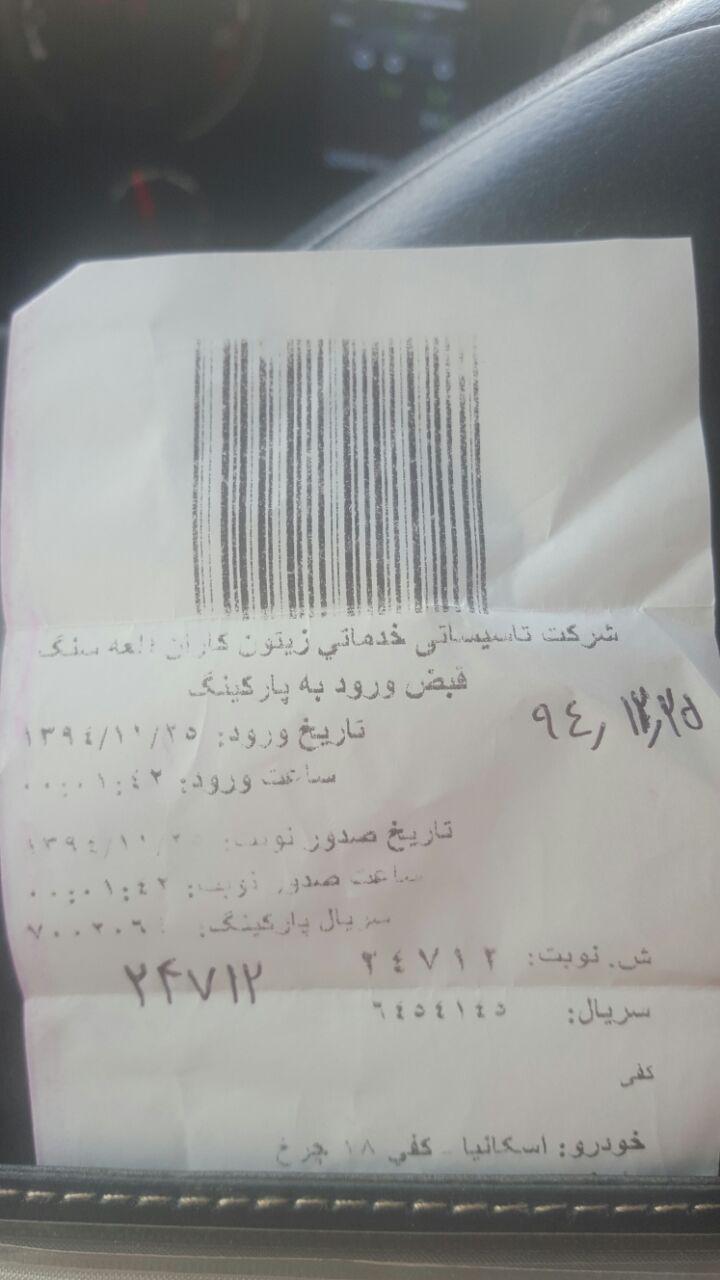 شرکت تاسیساتی خدماتي زیتون کاران سنگ
قبض ورود به پارکینگ
۹٤,۱۲,۲۵
تاریخ ورود: ۱۳۹٤/۱۰/۲۵
ساعت ورود: ۰۰:۰۱:٤۲
تاریخ صدور نوبت: ۱۳۹٤/۱۰/۲۵
ساعت صدور نوبت: ۰۰:۰۱:٤۲
سریال پارکینگ:
ش. نوبت: ۲٤۷۱۲
۲۴۷۱۲
سریال: ٦٤٥٤۱٤٥
کفی
خودرو: اسکانیا - کفي ۱۸ چرخ